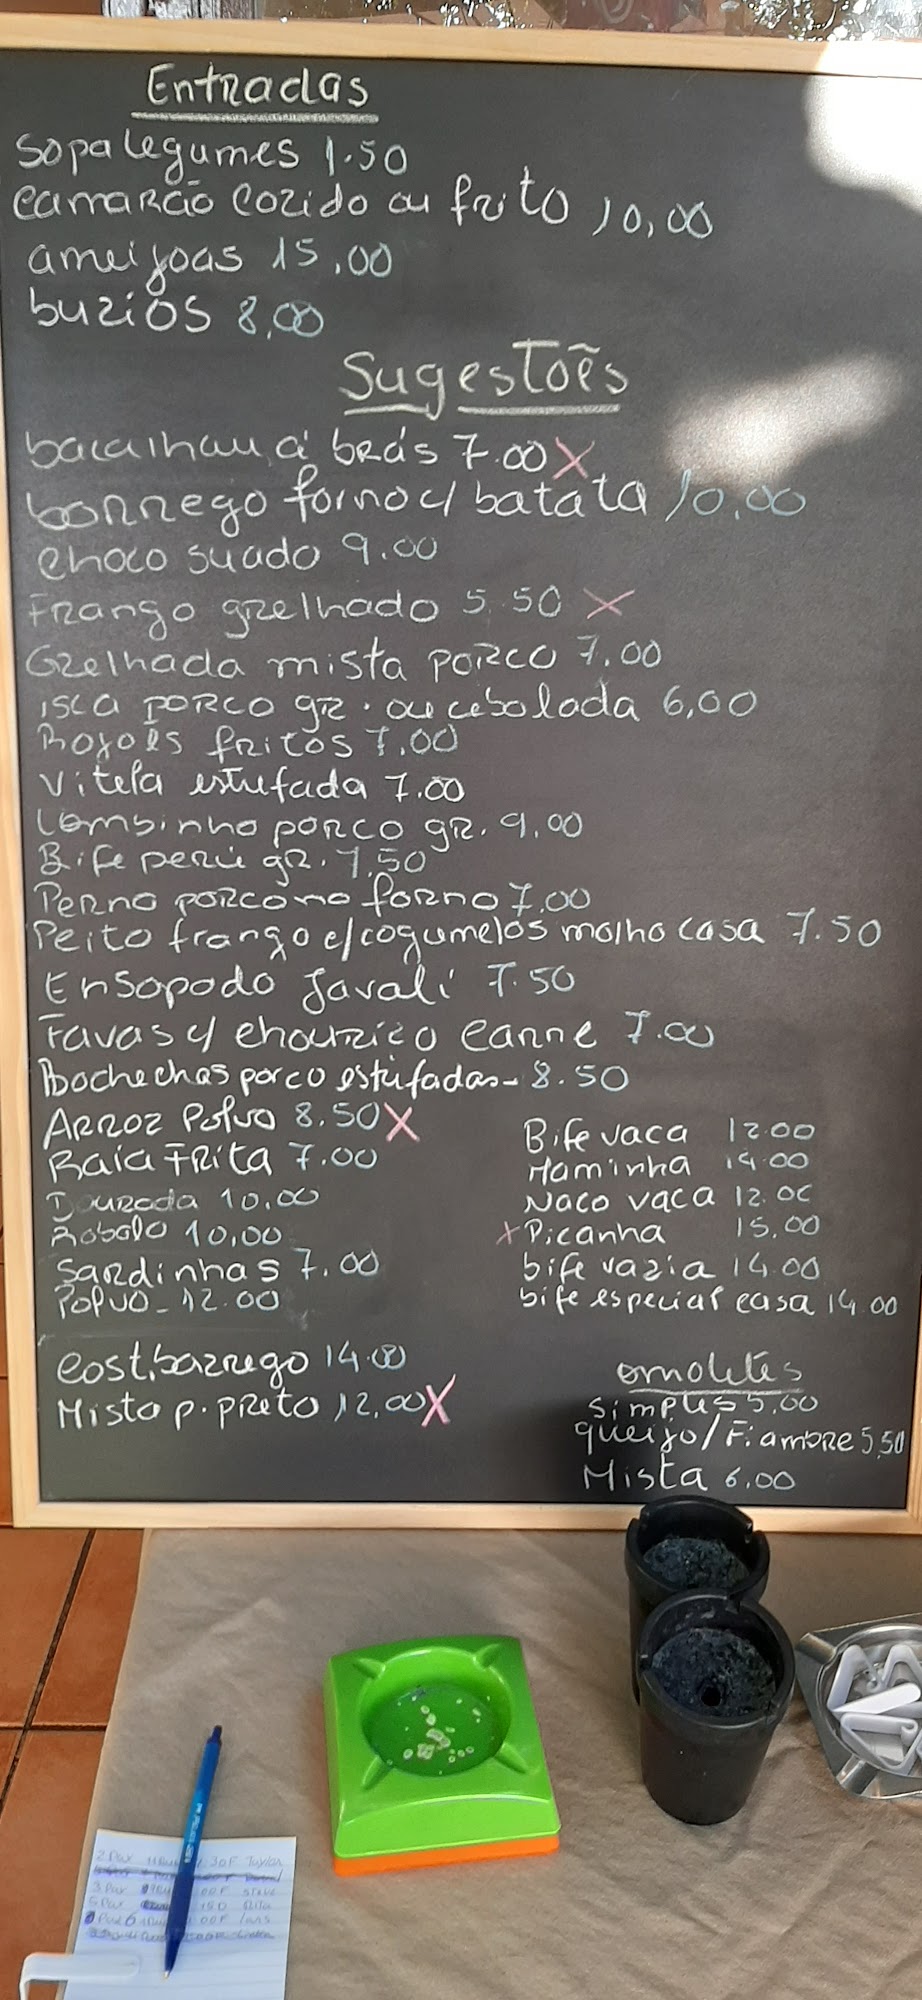 Entradas
Sopa legumes 1.50
Camarão cozido ou frito 10,00
ameijoas 15,00
buzios 8,00
Sugestões
bacalhau á brás 7.00 X
borrego forno c/ batata 10,00
choco suado 9.00
Frango grelhado 5.50 X
Grelhada mista porco 7,00
isca porco gr. ou cebolada 6,00
Rojoês fritos 7,00
Vitela estufada 7.00
Lombinho porco gr. 9,00
Bife perú gr. 7,50
Perna porco no forno 7,00
Peito frango c/cogumelos molho casa 7.50
Ensopado Javali 7.50
Favas c/ chouriço carne 7.00
Bochechas porco estufadas - 8.50
Arroz Polvo 8.50 X
Raia Frita 7.00
Dourada 10,00
Robalo 10,00
Sardinhas 7.00
Polvo - 12.00
Cost. barrego 14.00
Misto p. preto 12,00 X
Bife vaca 12.00
Maminha 14.00
Naco vaca 12.00
X Picanha 15.00
bife vazia 14.00
bife especial casa 14.00
omoletes
Simples 5,00
queijo/Fiambre 5,50
Mista 6,00